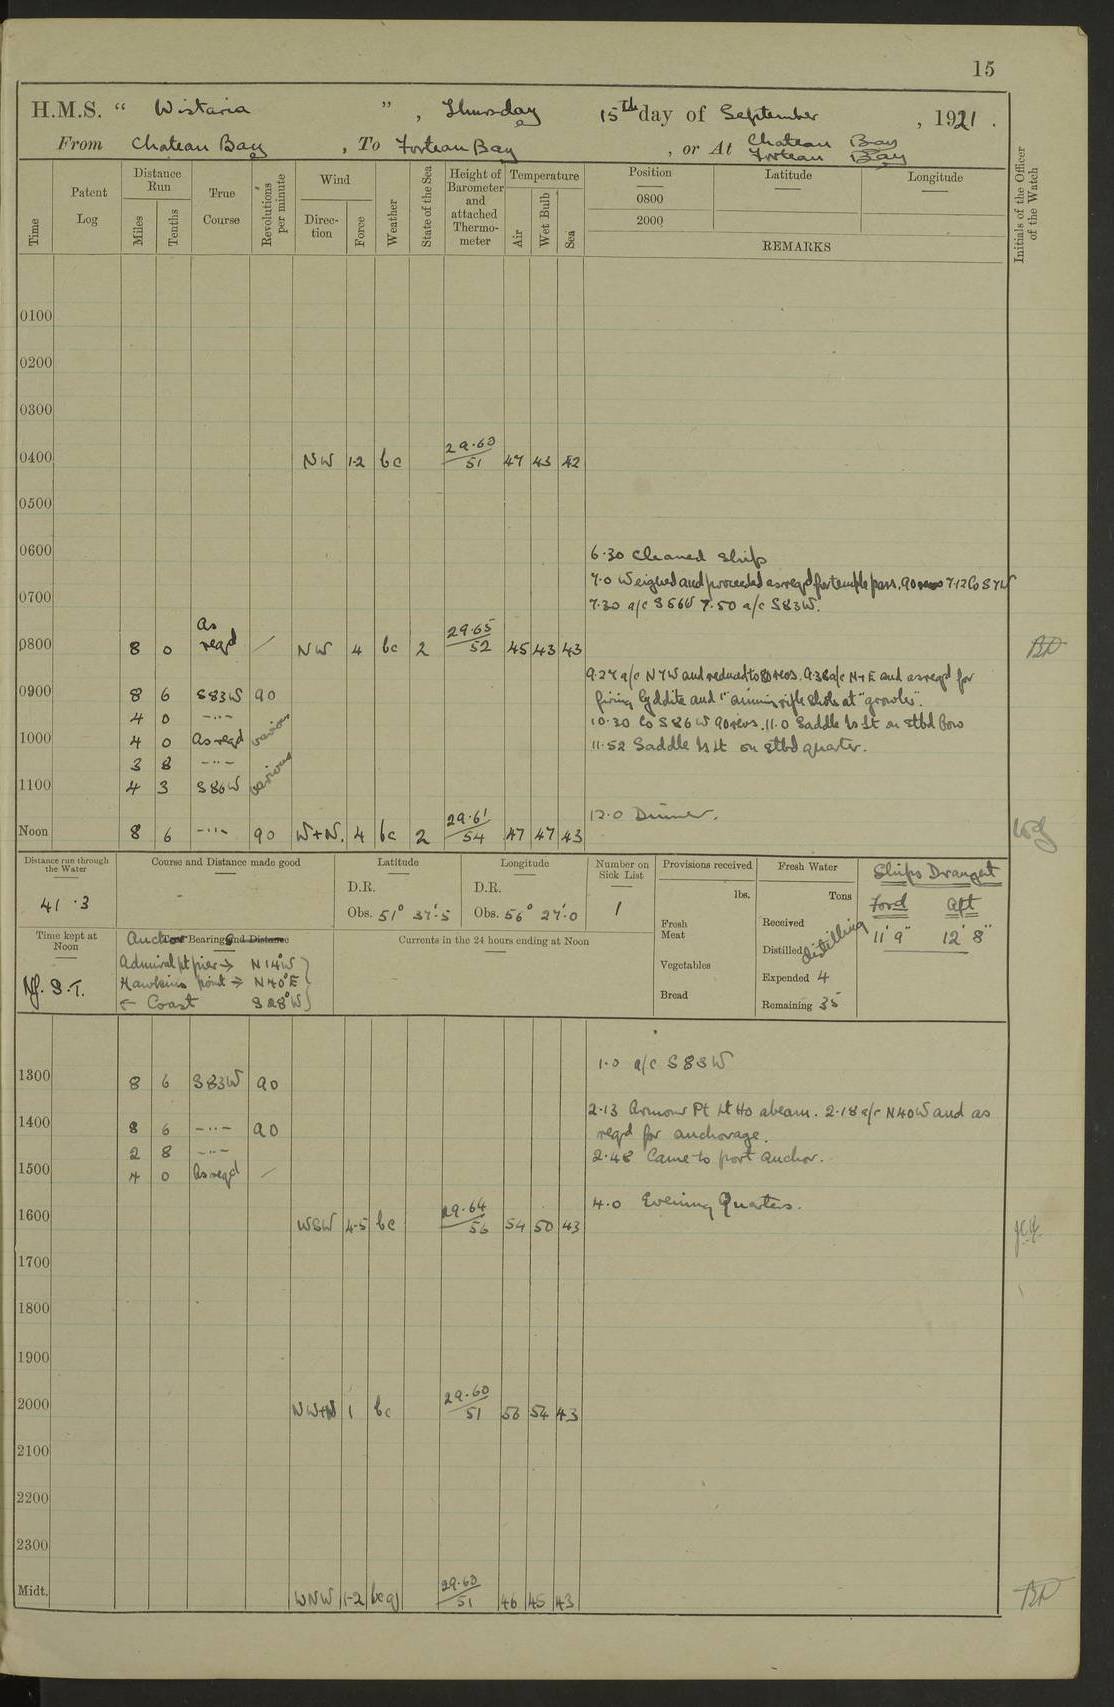 15
H.M.S. " Wistaria ", Thursday 15th day of September, 1921.
From Chateau Bay, To Forteau Bay, or At Chateau Bay
Forteau Bay
Time
Patent Log
Distance Run
Miles
Tenths
True Course
Revolutions per minute
Wind
Direction
Force
Weather
State of the Sea
Height of Barometer and attached Thermometer
Temperature
Air
Wet Bulb
Sea
Position
0800
2000
Latitude
Longitude
REMARKS
Initials of the Officer of the Watch
0100
0200
0300
0400 NW 1-2 bc 29.60/51 47 43 42
0500
0600
6.30 Cleaned Ship
7.0 Weighed and proceeded as reqd for temple pass. 90 revs 7.12 Co S 7W
0700
7.30 a/c S56W 7.50 a/c S83W.
0800 8 0 as reqd / NW 4 bc 2 29.65/52 45 43 43
9.27 a/c N7W and reduced to 80 revs. 9.38 a/c N7E and as reqd for
0900 8 6 S83W 90
firing lyddite and 1" aiming rifle shots at "growler".
4 0 -..- various
10.30 Co S86W 90 revs. 11.0 Saddle Is Lt on stbd bow
1000 4 0 As reqd
11.52 Saddle Is Lt on stbd quarter.
3 8 -..- various
1100 4 3 S86W
12.0 Dinner.
Noon 8 6 -..- 90 W+N. 4 bc 2 29.61/54 47 47 43
Distance run through the Water
41.3
Course and Distance made good
-
Latitude
D.R.
Obs. 51° 37'.5
Longitude
D.R.
Obs. 56° 27'.0
Number on Sick List
1
Provisions received
lbs.
Fresh Meat
Vegetables
Bread
Fresh Water
Tons
Received
Distilled distilling
Expended 4
Remaining 35
Ships Draught
Ford Aft
11' 9" 12' 8"
Time kept at Noon
Nf. S.T.
Anchor Bearing and Distance
Admiral pt pier → N14°W
Hawkins point → N40°E
← Coast S28°W
Currents in the 24 hours ending at Noon
1.0 a/c S83W
1300 8 6 S83W 90
2.13 Armour Pt Lt Ho abeam. 2.18 a/c N40W and as
1400 8 6 -..- 90
reqd for anchorage.
2 8 -..-
2.48 Came to port anchor.
1500 4 0 As reqd /
4.0 Evening Quarters.
1600 WSW 4-5 bc 29.64/56 54 50 43
1700
1800
1900
2000 NW+W 1 bc 29.60/51 56 54 43
2100
2200
2300
Midt. WNW 1-2 bcq 29.60/51 46 45 43